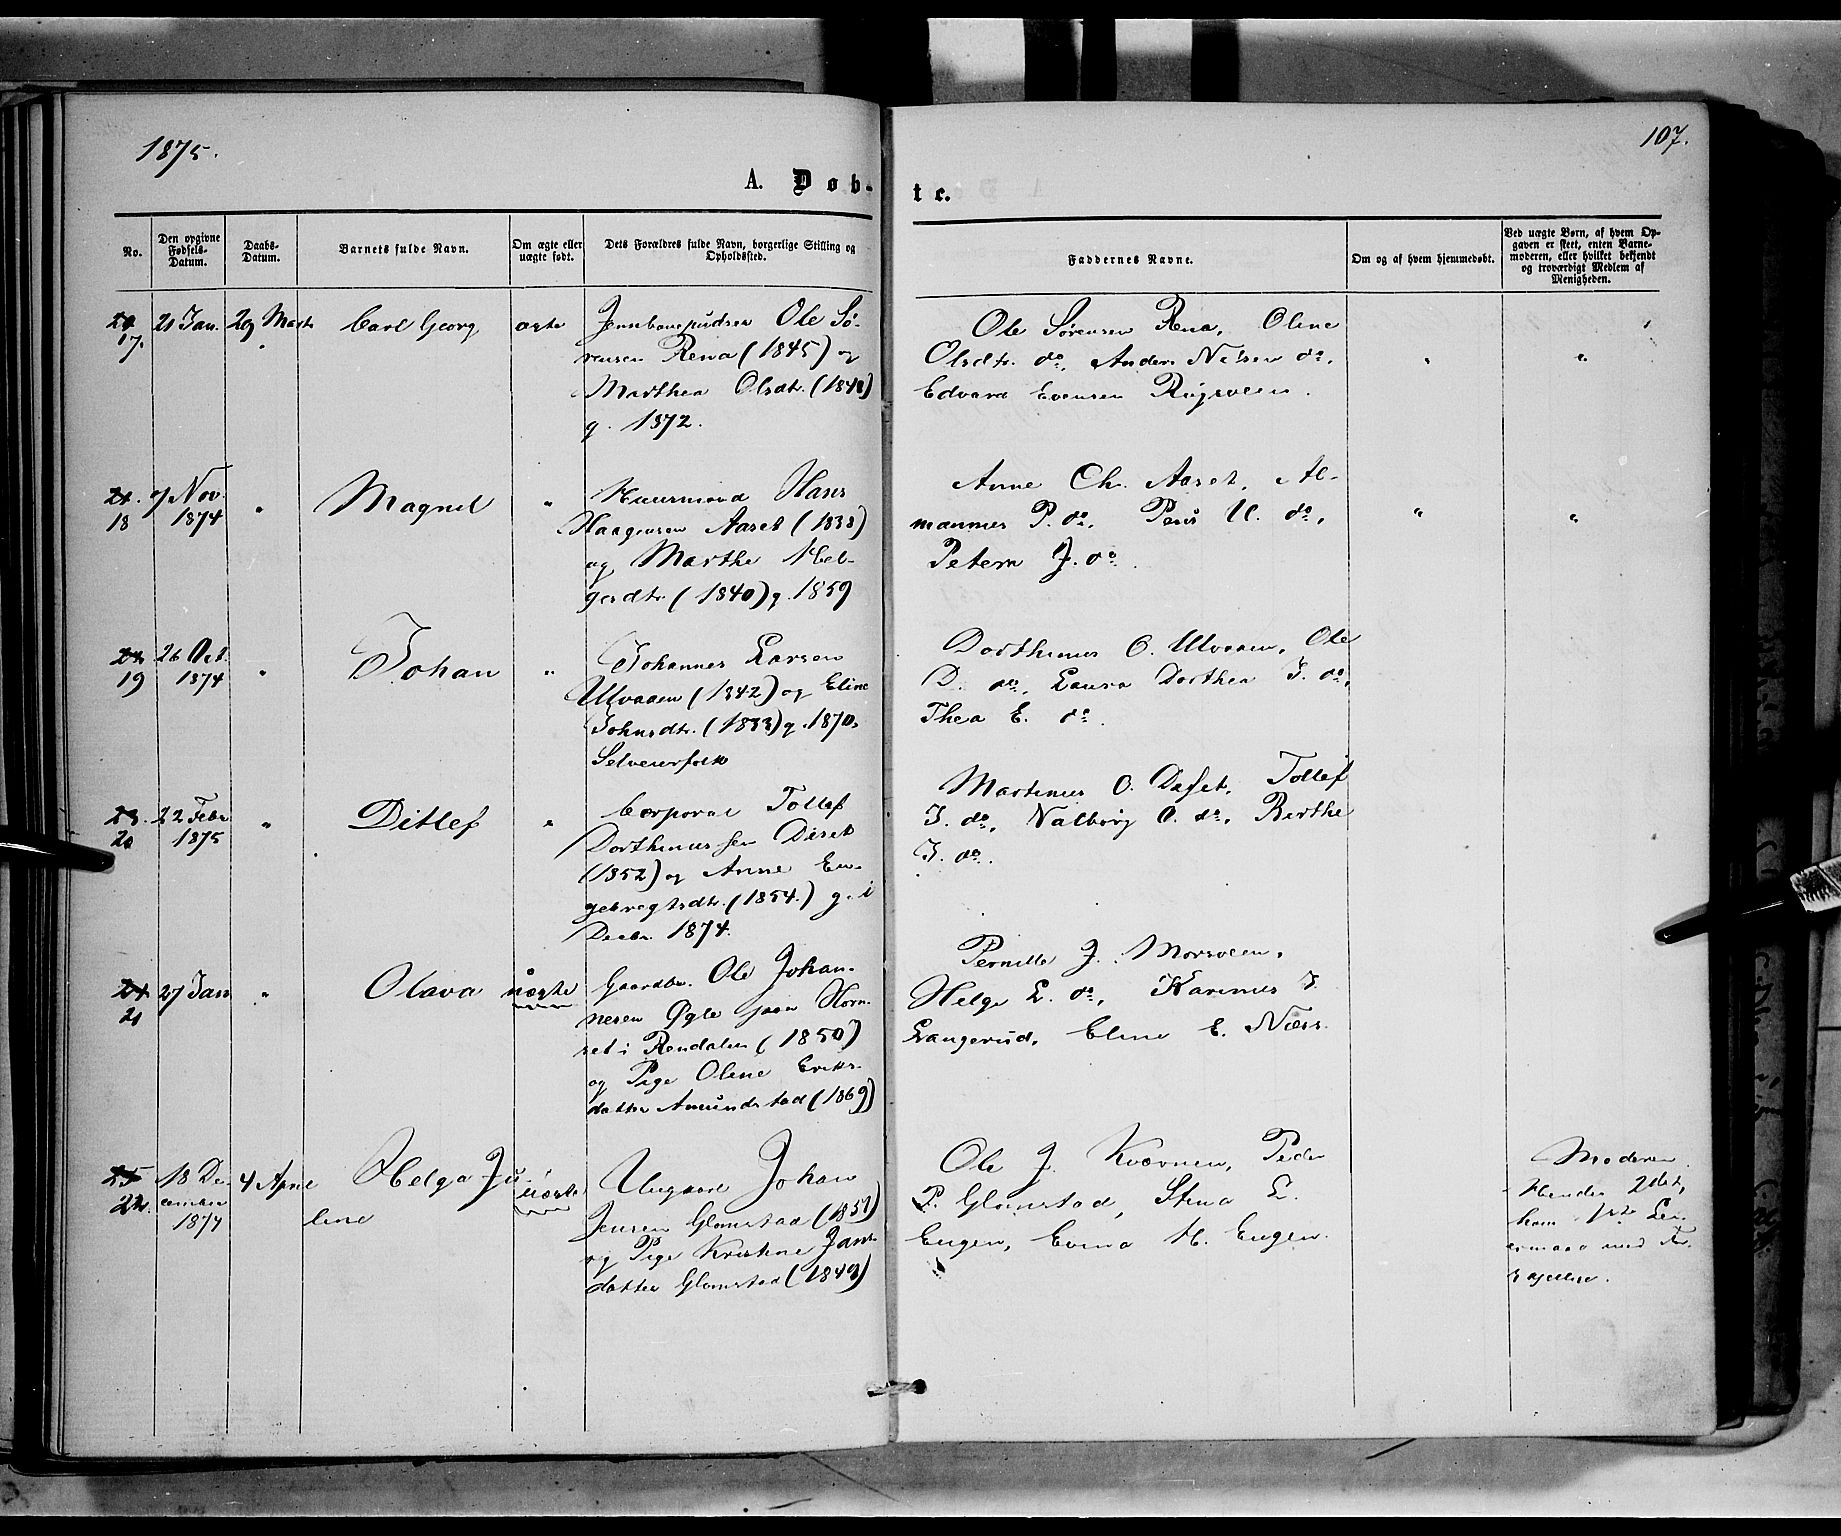 1875.
107.
A. Døb-
te.
No.
Den opgivne Fødsels-Datum.
Daabs-Datum.
Barnets fulde Navn.
Om ægte eller uægte født.
Dets Forældres fulde Navn, borgerlige Stilling og Opholdssted.
Faddernes Navne.
Om og af hvem hjemmedøbt.
Ved uægte Børn, af hvem Opgaven er skeet, enten Barnemoderen, eller hvilket bekjendt og troværdigt Medlem af Menigheden.
17.
21 Jan.
29 Marts
Carl Georg
ægte
Jernbanepudser Ole Sø-
rensen Rena (1845) og
Marthea Olsdt. (1848)
g. 1872.
Ole Sørensen Rena, Oline
Olsdtr. do, Anders Nilsen do,
Edvard Evensen Rugsveen.
21.
18
7 Nov.
1874
"
Magnil
"
Huusmand Hans
Haagensen Aaset (1838)
og Marthe Hel-
gesdtr. (1840) g. 1859
Anne Ch. Aaset, Al-
mannus P. do, H. do,
Petern J. do.
22
19
26 Oct.
1874
"
Johan
"
Johannes Larsen
Ulvaaen (1842) og Eline
Johnsdtr. (1833) g. 1870.
Selveierfolk
Dorthinus O. Ulvaaen, Ole
D. do, Laura Dorthea J. do,
Thea E. do.
23.
20
22 Febr
1875
"
Ditlef
"
Corporal Tollef
Dorthinussen Diset
(1852) og Anne En-
gebregtsdtr. (1854.) g. i
Decbr. 1874.
Martinus O. Diset, Tollef
J. do, Valborg O. do, Berthe
J. do.
24
21
27 Jan
"
Olava
uægte
Gaardbr. Ole Johan-
nesen Øgle paa Horn-
set i Rendalen (1850)
og Pige Oline Eriks-
datter Amundstad (1869)
Pernille J. Morsveen,
Helge L. do, Karinus J.
Langerud, Eline E. Næss.
25
22.
18 De-
cember
1874
4 April
Helga Ju-
line
uægte
Ungkarl Johan
Jensen Glomstad (1851)
og Pige Kristine Jans-
datter Glomstad (1849)
Ole J. Kværnen, Peder
P. Glomstad, Stina L.
Engen, Evena H. Engen.
Moderen.
Hendes 2det,
hans 1ste Lei-
ermaal med